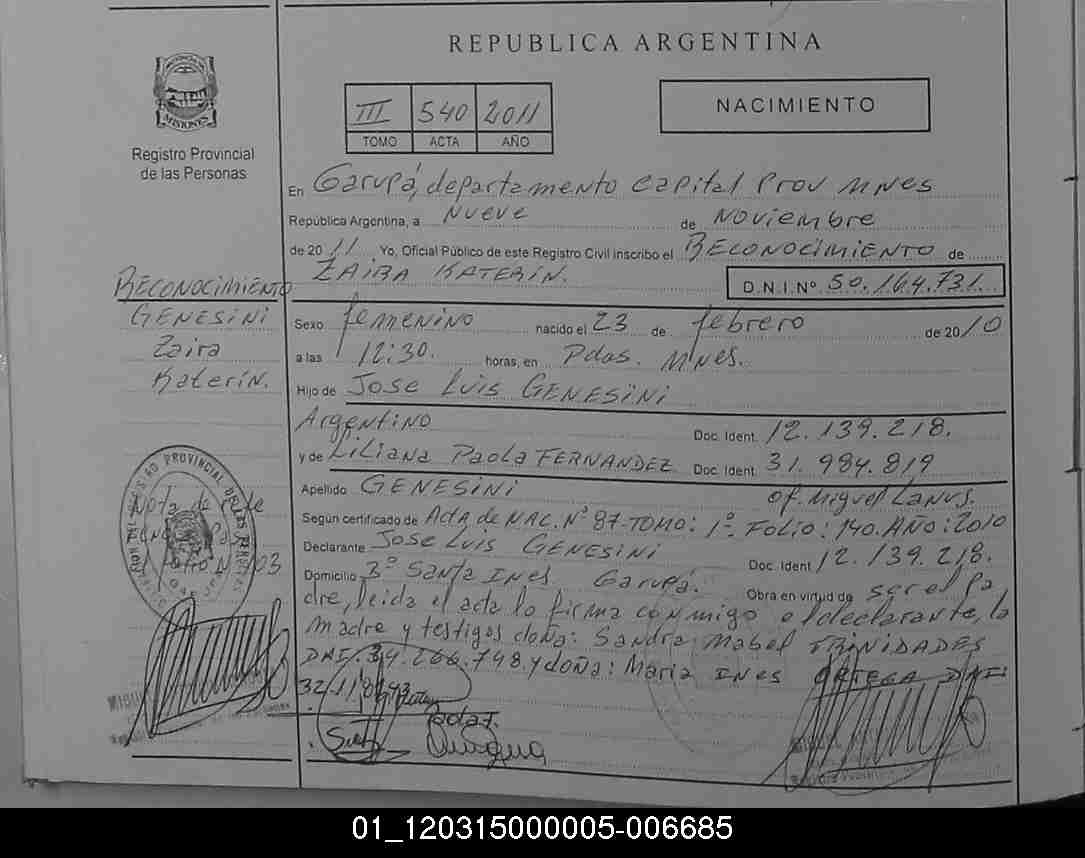 REPUBLICA ARGENTINA
MISIONES
Registro Provincial
de las Personas
III 540 2011
TOMO ACTA AÑO
NACIMIENTO
En Garupá, departamento Capital Prov MNES
República Argentina, a Nueve de Noviembre
de 2011 Yo, Oficial Público de este Registro Civil inscribo el RECONOCIMIENTO de
ZAIRA KATERIN. D.N.I.Nº 50.164.731.
Sexo femenino nacido el 23 de febrero de 2010
a las 12:30. horas, en Pdas. MNES.
Hijo de JOSE LUIS GENESINI
Argentino Doc. Ident. 12.139.218.
y de Liliana Paola FERNANDEZ Doc. Ident. 31.984.819
Apellido GENESINI of. Miguel Lanus.
Según certificado de Acta de NAC. Nº 87-TOMO: 1º. FOLIO: 140. AÑO: 2010
Declarante JOSE LUIS GENESINI Doc. Ident 12.139.218.
Domicilio Bº Santa INES Garupá. Obra en virtud de ser el pa
dre, leida el acta lo firma conmigo el declarante, la
madre y testigos doña: Sandra Mabel TRINIDADES
DNI. 34.266.748 y doña: Maria INES ORTEGA DNI:
RECONOCIMIENTO
GENESINI
Zaira
Katerin.
REGISTRO PROVINCIAL DE LAS PERSONAS
Nota de